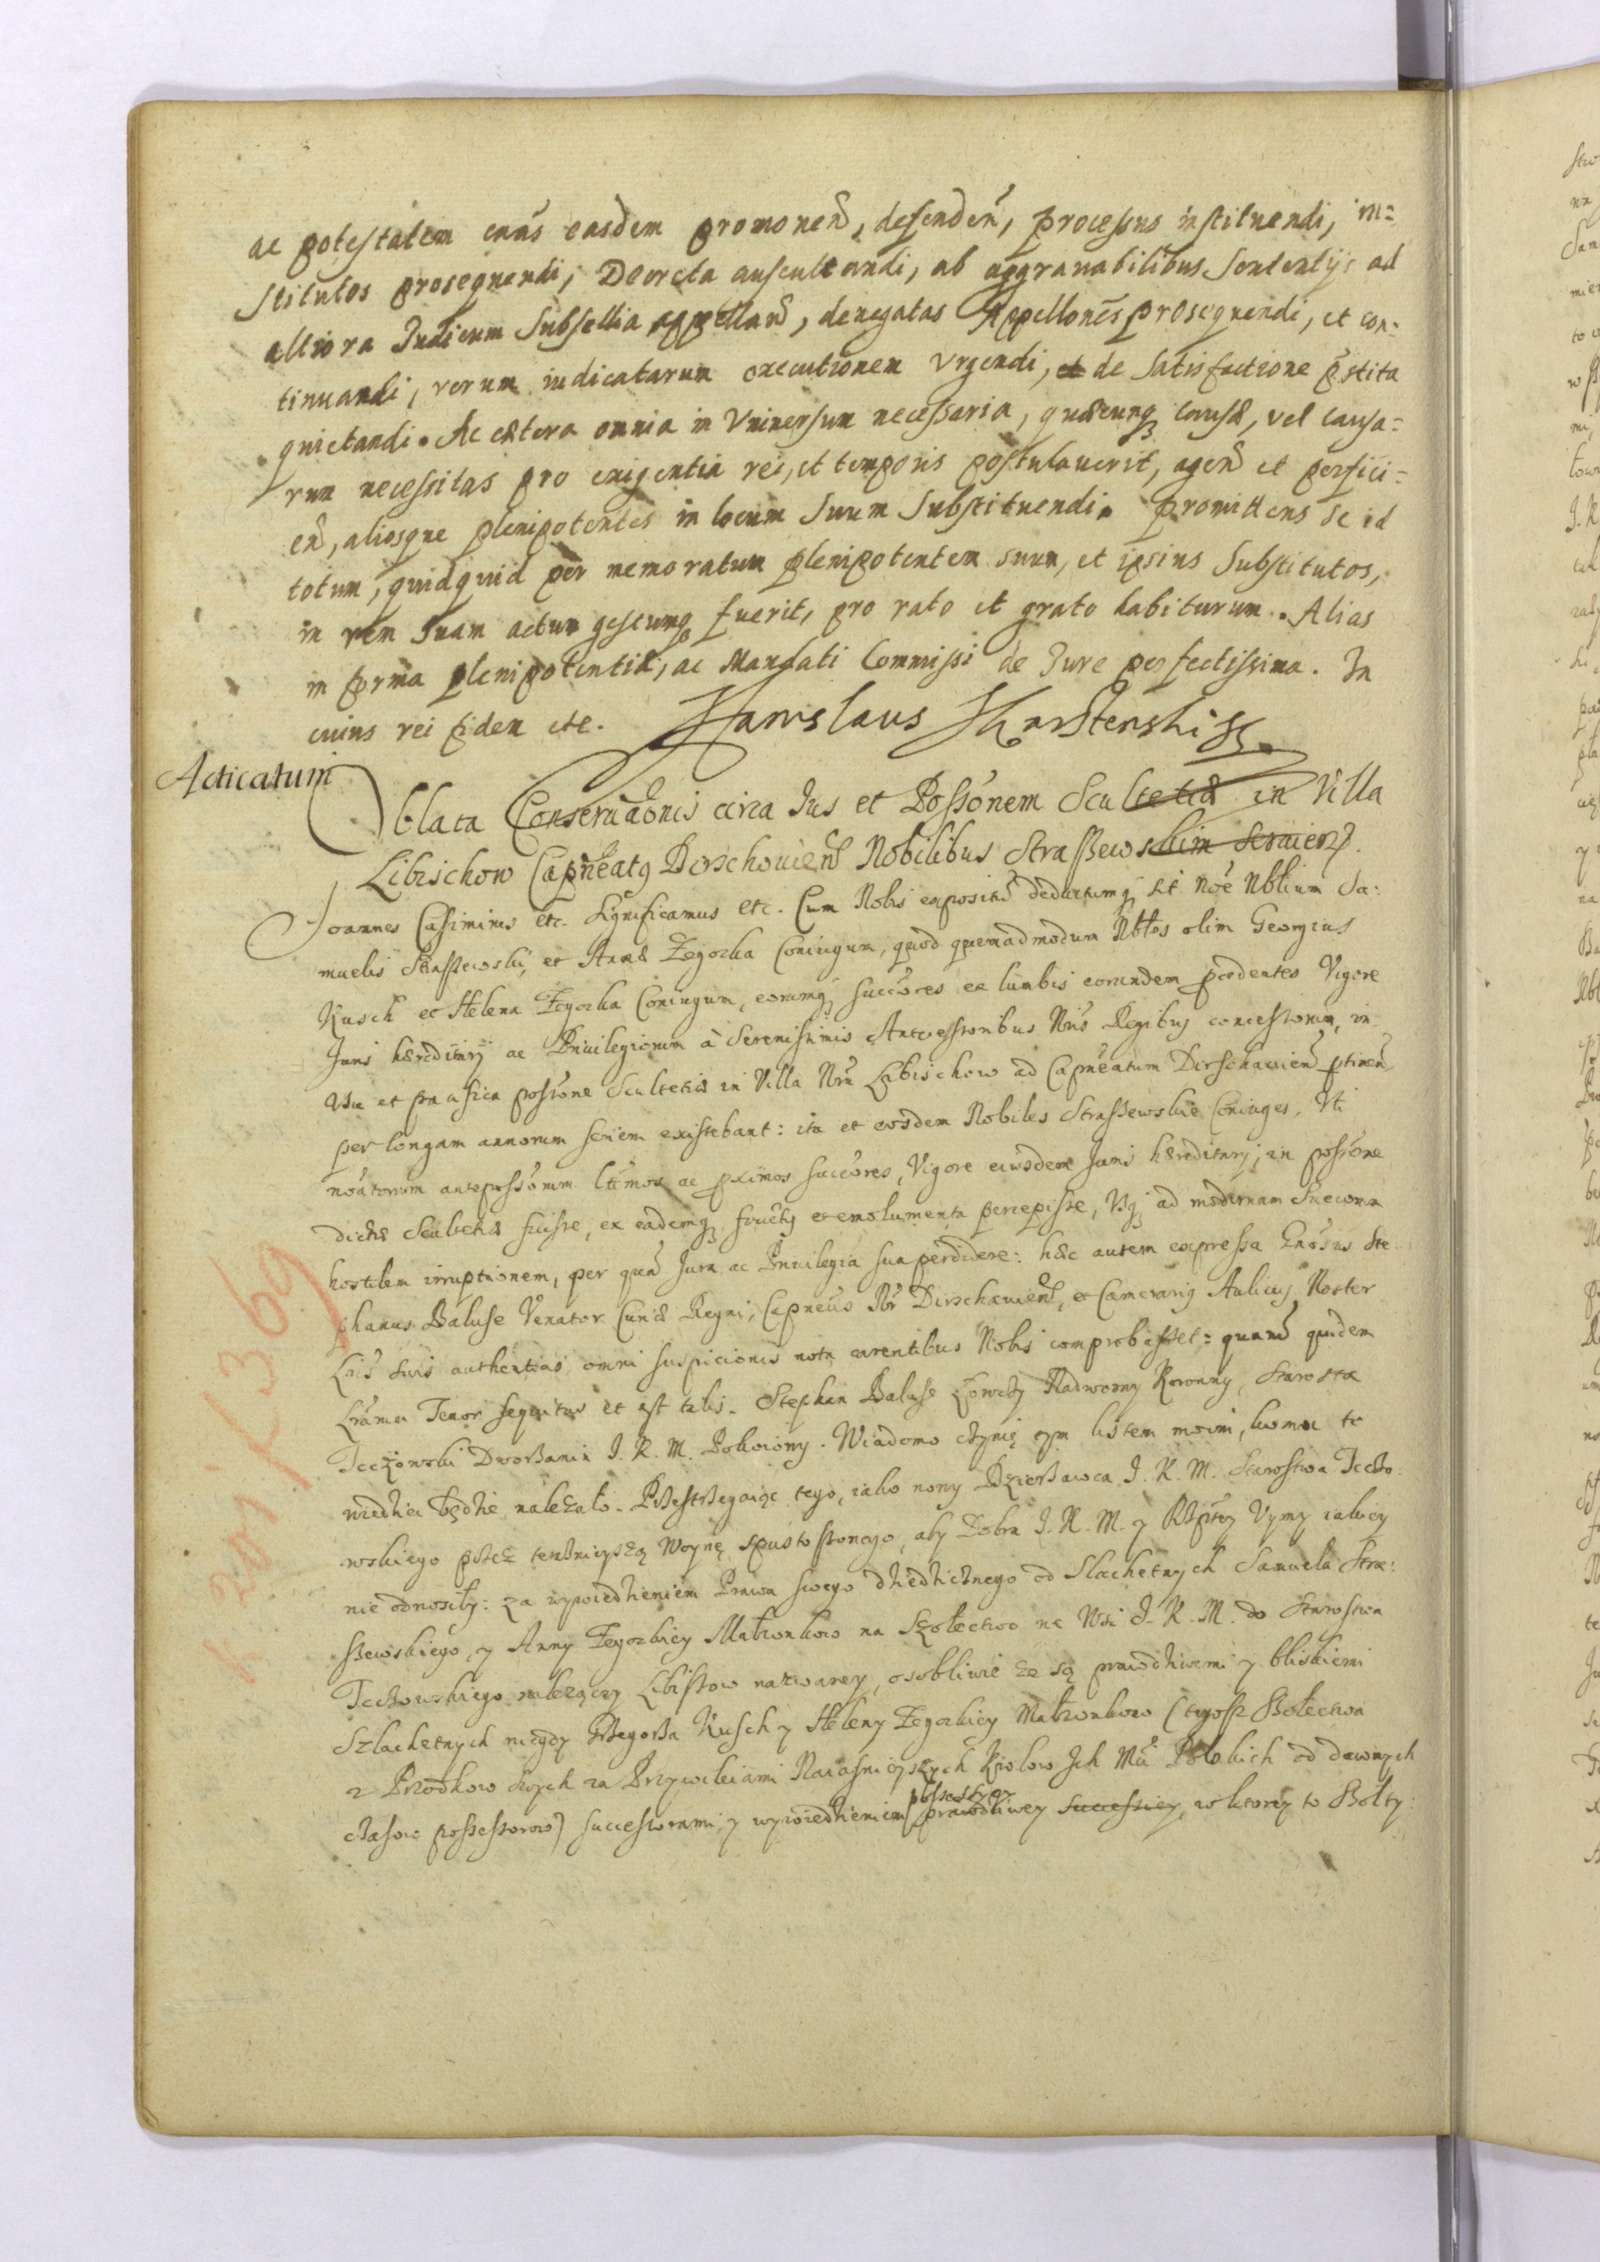 ac potestatem causas easdem promonend, defenden, processus instituendi, in=
stitutos prosequendi, Decreta auscultandi, ab aggrauabilibus Sententijs ad
altiora Iudicum Subsellia appelland, denegatas Appellones prosequendi, et con-
tinuandi, rerum iudicatarum executionem Vrgendi, et de Satisfactione pstita
quietandi. Ac cætera omnia in Vniuersum necessaria, quæcunq causæ, vel causa=
rum necessitas pro exigentia rei, et temporis postulauerit, agend et perfici=
end, aliosque plenipotentes in locum Suum Substituendi. promittens se id
totum, quidquid per memoratum plenipotentem suum, et ipsius Substitutos,
in rem Suam actum gestumq fuerit, pro rato et grato habiturum. Alias
in forma plenipotentiæ, ac Mandati Commissi de Iure perfectissima. In
cuius rei fidem etc. Stanislaus
Acticatum
Oblata Conseruaonis circa Ius et Possonem Scultetiæ in Villa
Libischow Capneatq Dirschouiens Nobilibus Strassewskim seruiens.
Joannes Casimirus etc. Significamus etc. Cum Nobis expositu deductumq sit noe Nblium Sa:
muelis Strassewski, et Annæ Zegorka Coniugum, quod quemadmodum Nbles olim Georgius
Kusch et Helena Zegorka Coniugum, eorumq succores ex lumbis eorundem pcedentes Vigore
Juris hæreditarij ac Priuilegiorum à Serenissimis Antecessoribus Nris Regibus concessorum, in
Vsu et pacifica possione Scultetiæ in Villa Nra Libischow ad Capneatum Dirschauien ptinen
per longam annorum seriem existebant: ita et eosdem Nobiles Strassewskie Coniuges, Vti
noatorum antepossorum ltimos ac pximos succores, Vigore eiusdem Juris hæreditarij, in possione
dictæ Scultetiæ fuisse, ex eademq fructq et emolumenta percepisse, Vsq ad modernam Suecorum
hostilem irruptionem, per qua Jura ac Priuilegia sua perdidere: hæc autem expressa Gnosus Ste-
phanus Baluse Venator Curiæ Regni, Capneus Nr Dirschauiens, et Camerarig Aulicus Noster
Lris suis authenticis omni suspicionis nota carentibus Nobis comprobasset: quaru quidem
Lraru Tenor sequitur et est talis. Stephan Baluse Łowczy Nadworny Koronny, Starosta
Tczowski Dworzanin J. K. M. Pokoiowy. Wiadomo czynię tym listem moim, komu to
wiedziec będzie należało. Przestrzegaiąc tego, iako nowy Dzierzawca J. K. M. Starostwa Tczo-
wskiego przez teraznieyszą Woynę spustoszonego, aby Dobra J. K. M. y Rzpltey Vymy iakiey
nie odnosiły: za wywiedzieniem Prawa swego dziedzicznego od Slachetnych Samuela Stra:
szewskiego, y Anny Zegorkiey Małzonkow na Szołectwo na Wsi J. K. M. do Starostwa
Tczowskiego nalezącey Libiszow nazwaney, osobliwie ze są prawdziwemi y bliskiemi
Szlachetnych niegdy Grzegorza Kusch y Heleny Zegorkiey Małzonkow (tegosz Szołectwa
z Przodkow swych za Przywileiami Naiasnieyszych Krolow Jch Mci Polskich od dawnych
czasow possessorow) successorami, y wywiedzieniem possessyey prawdziwey successiey, w ktorey to Szolty: